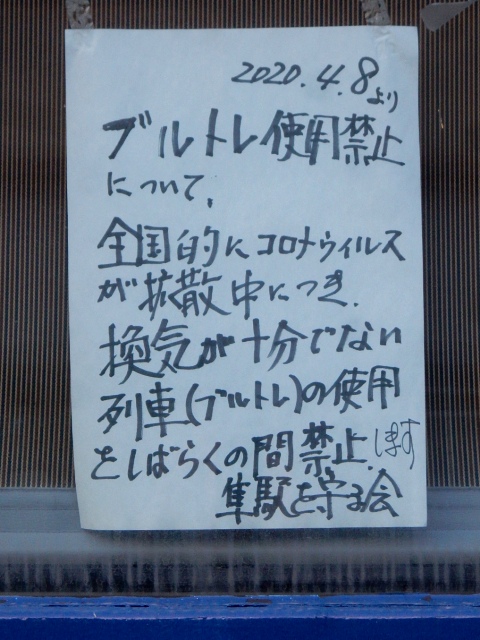 2020.4.8より
ブルトレ使用禁止
について、
全国的にコロナウィルス
が拡散中につき、
換気が十分でない
列車(ブルトレ)の使用
をしばらくの間禁止します
隼駅を守る会